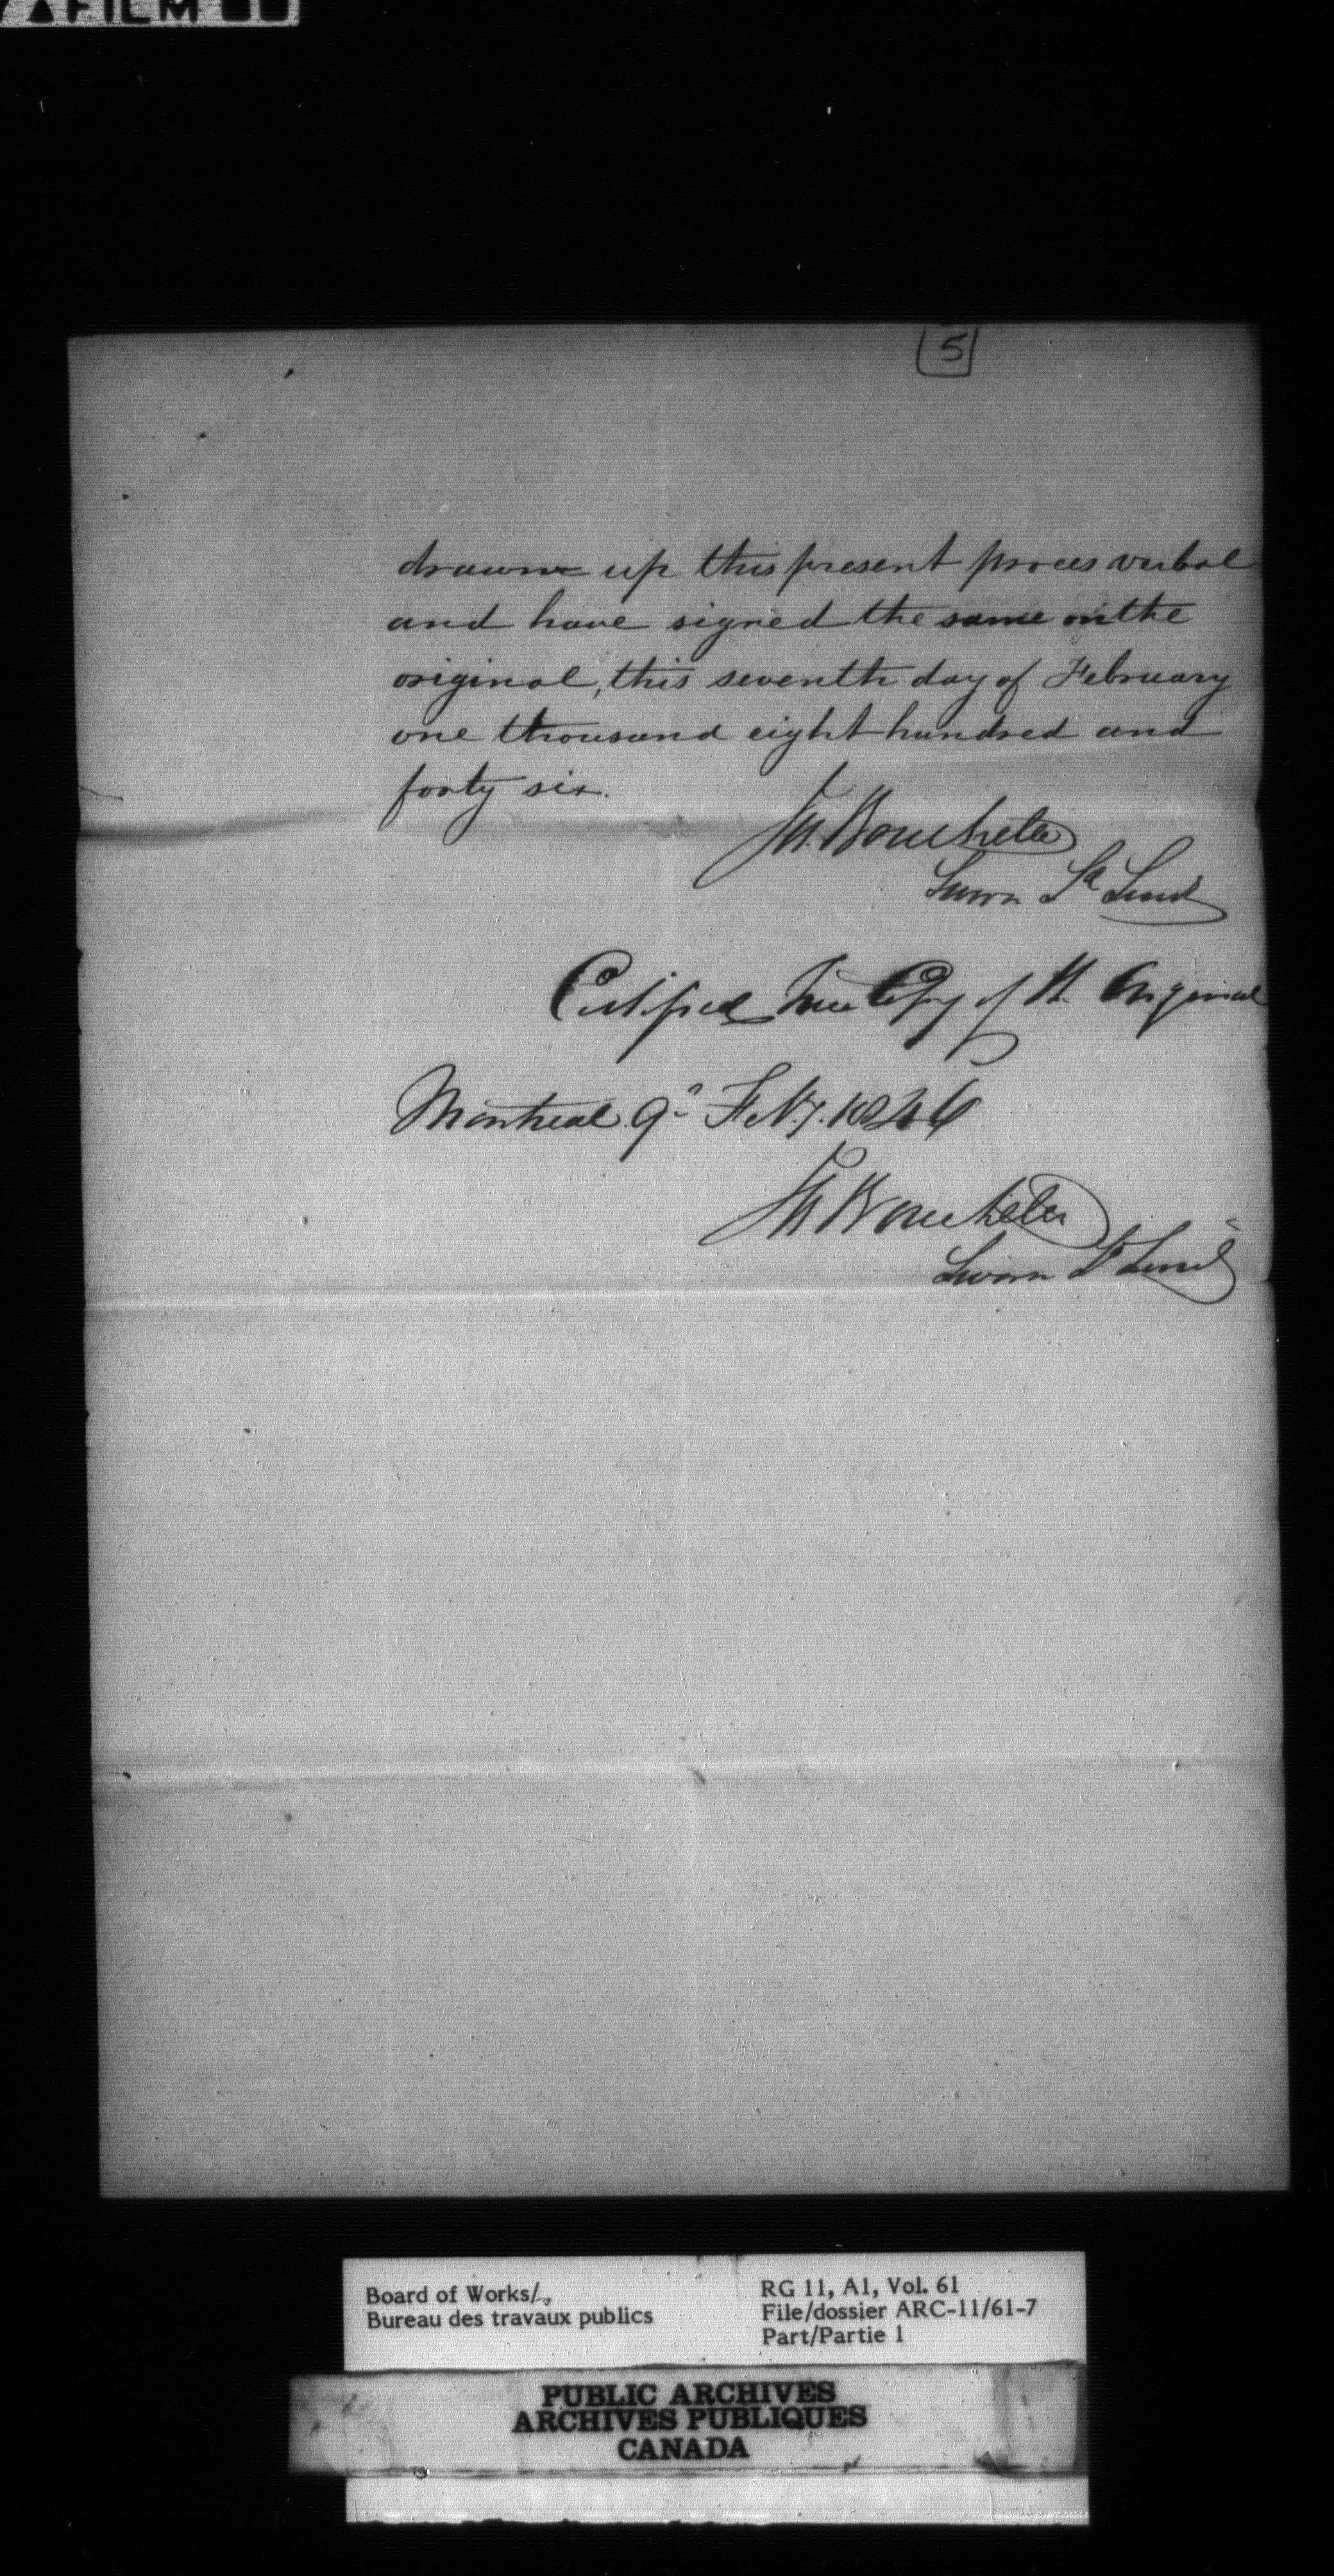 5
drawn up this present proces verbal
and have signed the same on the
original, this seventh day of February
one thousand eight hundred and
forty six.
Jh. Bouchette
Sworn
Certified True Copy of the Original
Montreal 9th Feby. 1846
Jh Bouchette
Sworn
Board of Works/
Bureau des travaux publics
RG 11, A1, Vol. 61
File/dossier ARC-11/61-7
Part/Partie 1
PUBLIC ARCHIVES
ARCHIVES PUBLIQUES
CANADA